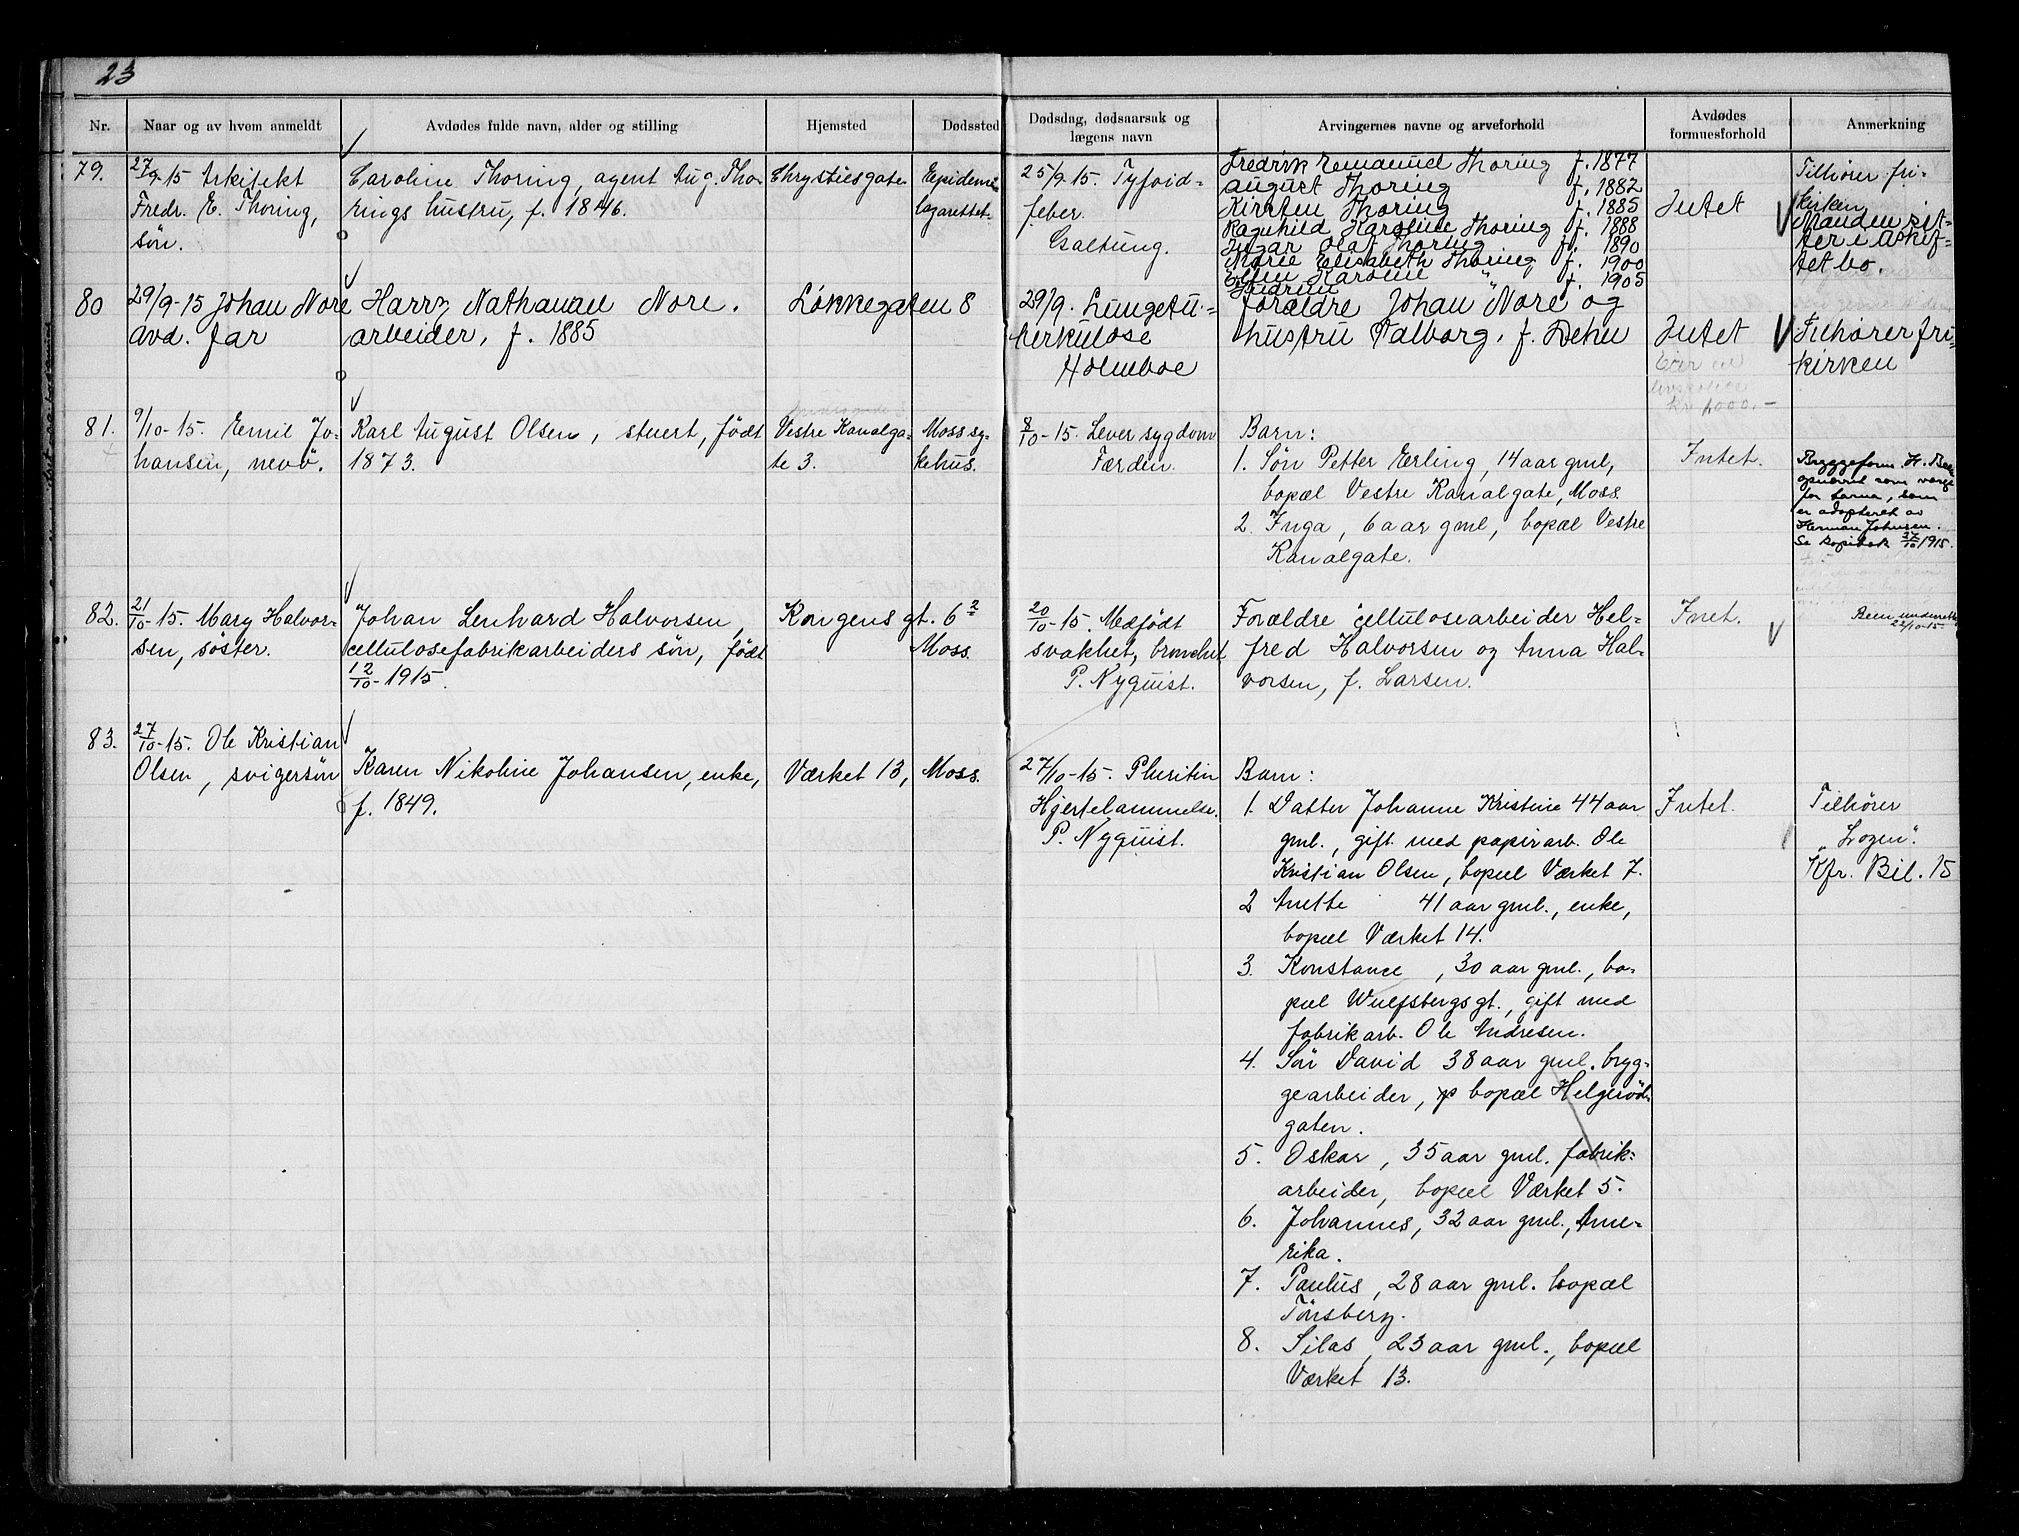 23
Nr.
Naar og av hvem anmeldt
Avdødes fulde navn, alder og stilling
Hjemsted
Dødssted
Dødsdag, dødsaarsak og
lægens navn
Arvingernes navne og arveforhold
Avdødes
formuesforhold
Anmerkning
79.
27/9-15 Arkitekt
Fredr. E. Thoring,
søn.
Caroline Thoring, agent Aug. Tho-
rings hustru, f. 1846.
Chrystiesgate
Epidemi-
lazarettet.
25/9 15. Tyfoid-
feber.
Galtung.
Fredrik Emanuel Thoring f. 1877
August Thoring f. 1882
Kirsten Thoring f. 1885
Ragnhild Karoline Thoring f. 1888
Ingar Olaf Thoring f. 1890
Marie Elisabeth Thoring f. 1900
Karoline " f. 1905
Intet
Tilhører fri-
kirken
Manden sit-
ter i uskif-
tet bo.
80
29/9-15 Johan Nore
avd. far
Harry Nathanael Nore.
arbeider, f. 1885
Løkkegaten 8
29/9. Lungetu-
berkulose
Holmboe
forældre Johan Nore og
hustru Valborg, f. Dehn
Intet
kr 1000.-
Tilhører fri-
kirken
81.
9/10-15. Emil Jo-
hansen, nevø.
Karl August Olsen, stuert, født
1873.
Vestre Kanalga-
te 3.
Moss sy-
kehus.
8/10-15. Leversygdom
Færden.
Barn:
1. Søn Petter Erling, 14 aar gml,
bopæl Vestre Kanalgate, Moss.
2. Inga, 6 aar gml, bopæl Vestre
Kanalgate.
Intet.
Bryggeform. H.
opnævnt som værge
for barna, som
er adopteret av
Herman Johnsen.
Se kopibok 27/10 1915.
82.
21/10-15. Mary Halvor-
sen, søster.
Johan Lenhard Halvorsen,
cellulosefabrikarbeiders søn, født
12/10-1915.
Kongens gt. 6²
Moss.
20/10-15. Medfødt
svakhet, bronchit
P. Nyquist.
Forældre cellulosearbeider Hel-
fred Halvorsen og Anna Hal-
vorsen, f. Larsen.
Inet.
Been underrettet
22/10-15.
83.
27/10-15. Ole Kristian
Olsen, svigersøn
Karen Nikoline Johansen, enke,
f. 1849.
Værket 13,
Moss.
27/10-15. Pluritin
Hjertelammelse.
P. Nyquist.
Barn:
1. Datter Johanne Kristine 44 aar
gml., gift med papirarb. Ole
Kristian Olsen, bopæl Værket 7.
2 Anette 41 aar gml., enke,
bopæl Værket 14.
3. Konstance, 30 aar gml., bo-
pæl Wulfsbergsgt., gift med
fabrikarb. Ole Andresen.
4. Søn David 38 aar gml. bryg-
gearbeider, bopæl Helgerød-
gaten.
5. Oskar, 35 aar gml. fabrik-
arbeider, bopæl Værket 5.
6. Johannes, 32 aar gml., Ame-
rika.
7. Paulus, 28 aar gml. bopæl
Tönsberg.
8. Silas, 23 aar gml., bopæl
Værket 13.
Intet.
Tilhører
"Logen".
Kfr. Bil. 15